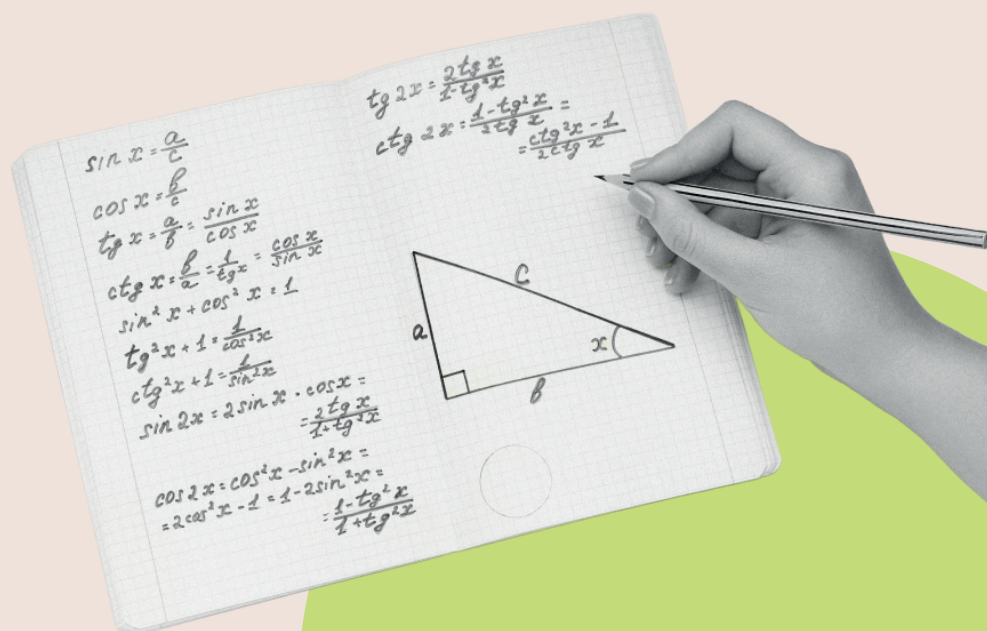 sin x = a/c
cos x = b/c
tg x = a/b = sin x/cos x
ctg x = b/a = 1/tg x = cos x/sin x
sin² x + cos² x = 1
tg² x + 1 = 1/cos² x
ctg² x + 1 = 1/sin² x
sin 2x = 2 sin x · cos x =
= 2 tg x/1 + tg² x
cos 2x = cos² x - sin² x =
= 2cos² x - 1 = 1 - 2sin² x =
= 1 - tg² x/1 + tg² x
tg 2x = 2 tg x/1 - tg² x
ctg 2x = 1 - tg² x/2 tg x =
= ctg² x - 1/2 ctg x
c
a
x
b